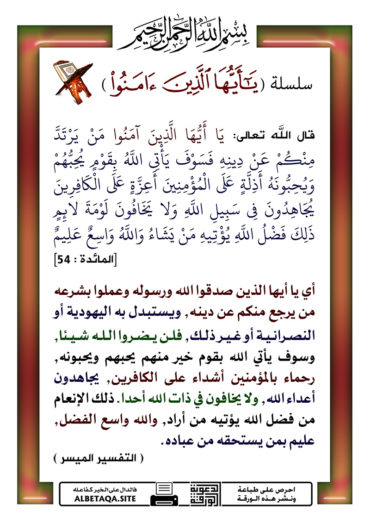 بسم الله الرحمن الرحيم
سلسلة ( يَٰٓأَيُّهَا ٱلَّذِينَ ءَامَنُواْ )
قال الله تعالى: يَا أَيُّهَا الَّذِينَ آمَنُوا مَنْ يَرْتَدَّ
مِنْكُمْ عَنْ دِينِهِ فَسَوْفَ يَأْتِي اللَّهُ بِقَوْمٍ يُحِبُّهُمْ
وَيُحِبُّونَهُ أَذِلَّةٍ عَلَى الْمُؤْمِنِينَ أَعِزَّةٍ عَلَى الْكَافِرِينَ
يُجَاهِدُونَ فِي سَبِيلِ اللَّهِ وَلَا يَخَافُونَ لَوْمَةَ لَائِمٍ
ذَلِكَ فَضْلُ اللَّهِ يُؤْتِيهِ مَنْ يَشَاءُ وَاللَّهُ وَاسِعٌ عَلِيمٌ
[المائدة : 54]
أي يا أيها الذين صدقوا الله ورسوله وعملوا بشرعه
من يرجع منكم عن دينه, ويستبدل به اليهودية أو
النصرانية أو غير ذلك, فلن يضروا الله شيئا,
وسوف يأتي الله بقوم خير منهم يحبهم ويحبونه,
رحماء بالمؤمنين أشداء على الكافرين, يجاهدون
أعداء الله, ولا يخافون في ذات الله أحدا. ذلك الإنعام
من فضل الله يؤتيه من أراد, والله واسع الفضل,
عليم بمن يستحقه من عباده.
( التفسير الميسر )
احرص على طباعة
ونشر هذه الورقة
فالدال على الخير كفاعله
ALBETAQA.SITE